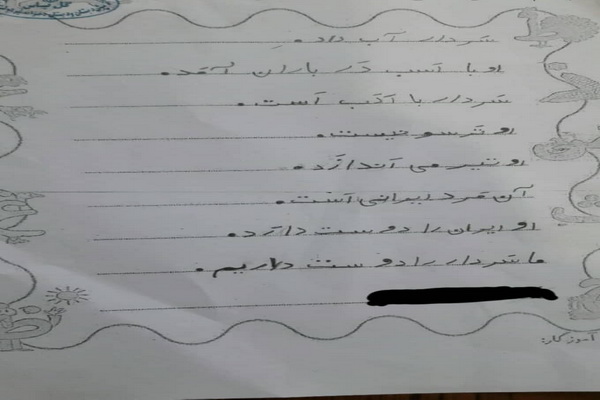 سَردار آب داد.
او با اَسب دَر باران آمَد.
سَردار با اَدَب اَست.
او تَرسو نیست.
او تیر می اَندازَد.
آن مَرد ایرانی اَست.
او ایران را دوست دارَد.
ما سَردار را دوست داریم.
آموزگار: